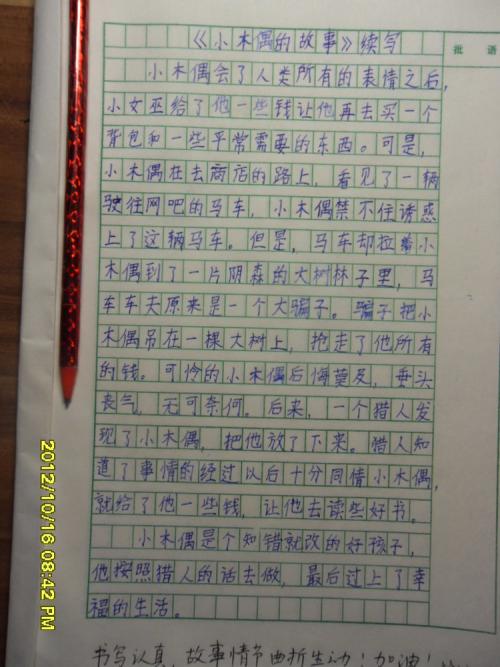 《小木偶的故事》续写
批 语
小木偶会了人类所有的表情之后，
小女巫给了他一些钱让他再去买一个
背包和一些平常需要的东西。可是，
小木偶在去商店的路上，看见了一辆
驶往网吧的马车，小木偶禁不住诱惑
上了这辆马车。但是，马车却拉着小
木偶到了一片阴森的大树林子里，马
车车夫原来是一个大骗子。骗子把小
木偶吊在一棵大树上，抢走了他所有
的钱。可怜的小木偶后悔莫及，垂头
丧气，无可奈何。后来，一个猎人发
现了小木偶，把他放了下来。猎人知
道了事情的经过以后十分同情小木偶，
就给了他一些钱，让他去读些好书。
小木偶是个知错就改的好孩子，
他按照猎人的话去做，最后过上了幸
福的生活。
书写认真，故事情节曲折生动！加油！
2012/10/16 08:42 PM